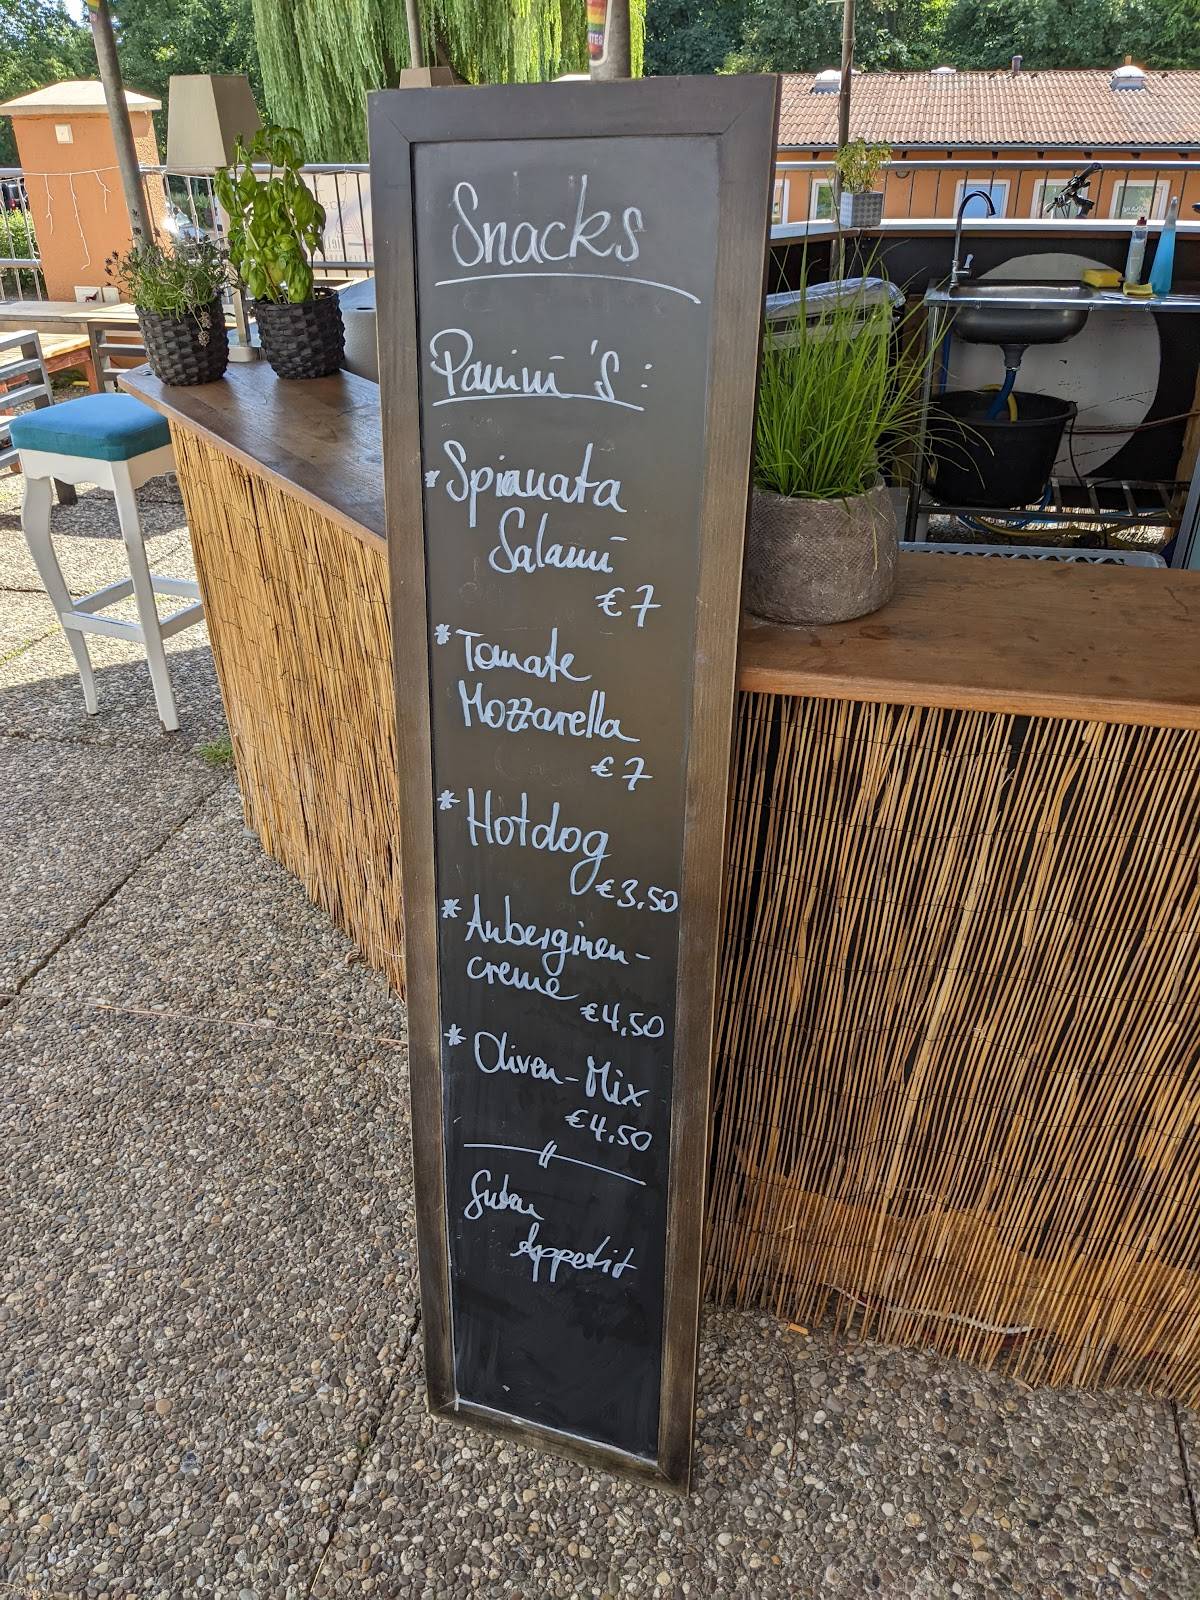 Snacks
Panini's:
* Spianata
Salami
€7
* Tomate
Mozzarella
€7
* Hotdog
€3,50
* Auberginen-
creme
€4,50
* Oliven-Mix
€4,50
Guten
Appetit